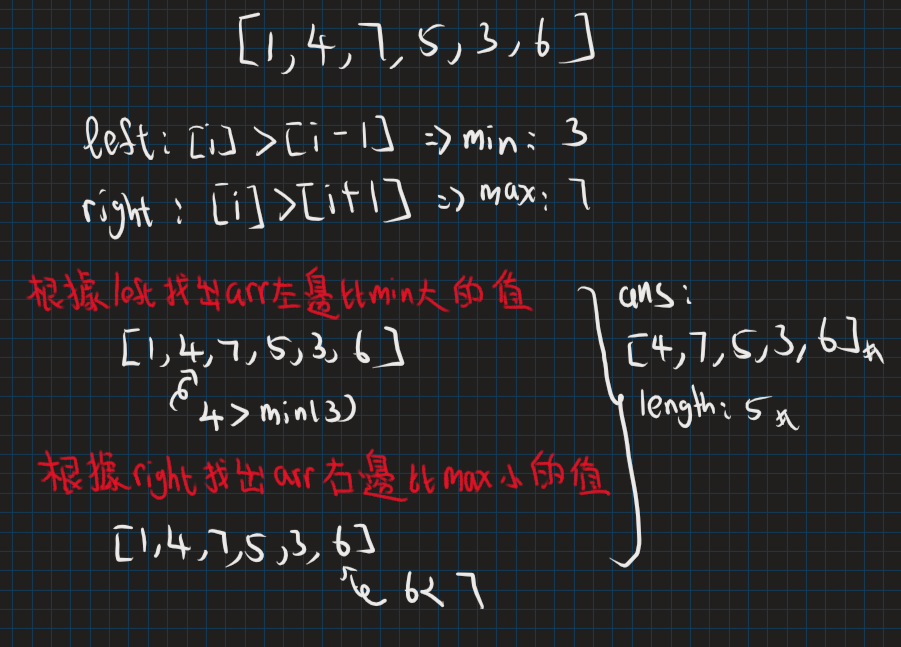 [1,4,7,5,3,6]
left: [i]>[i-1] => min: 3
right: [i]>[i+1] => max: 7
根據left找出arr左邊比min大的值
[1,4,7,5,3,6]
4>min(3)
根據right找出arr右邊比max小的值
[1,4,7,5,3,6]
6<7
ans:
[4,7,5,3,6]
length: 5